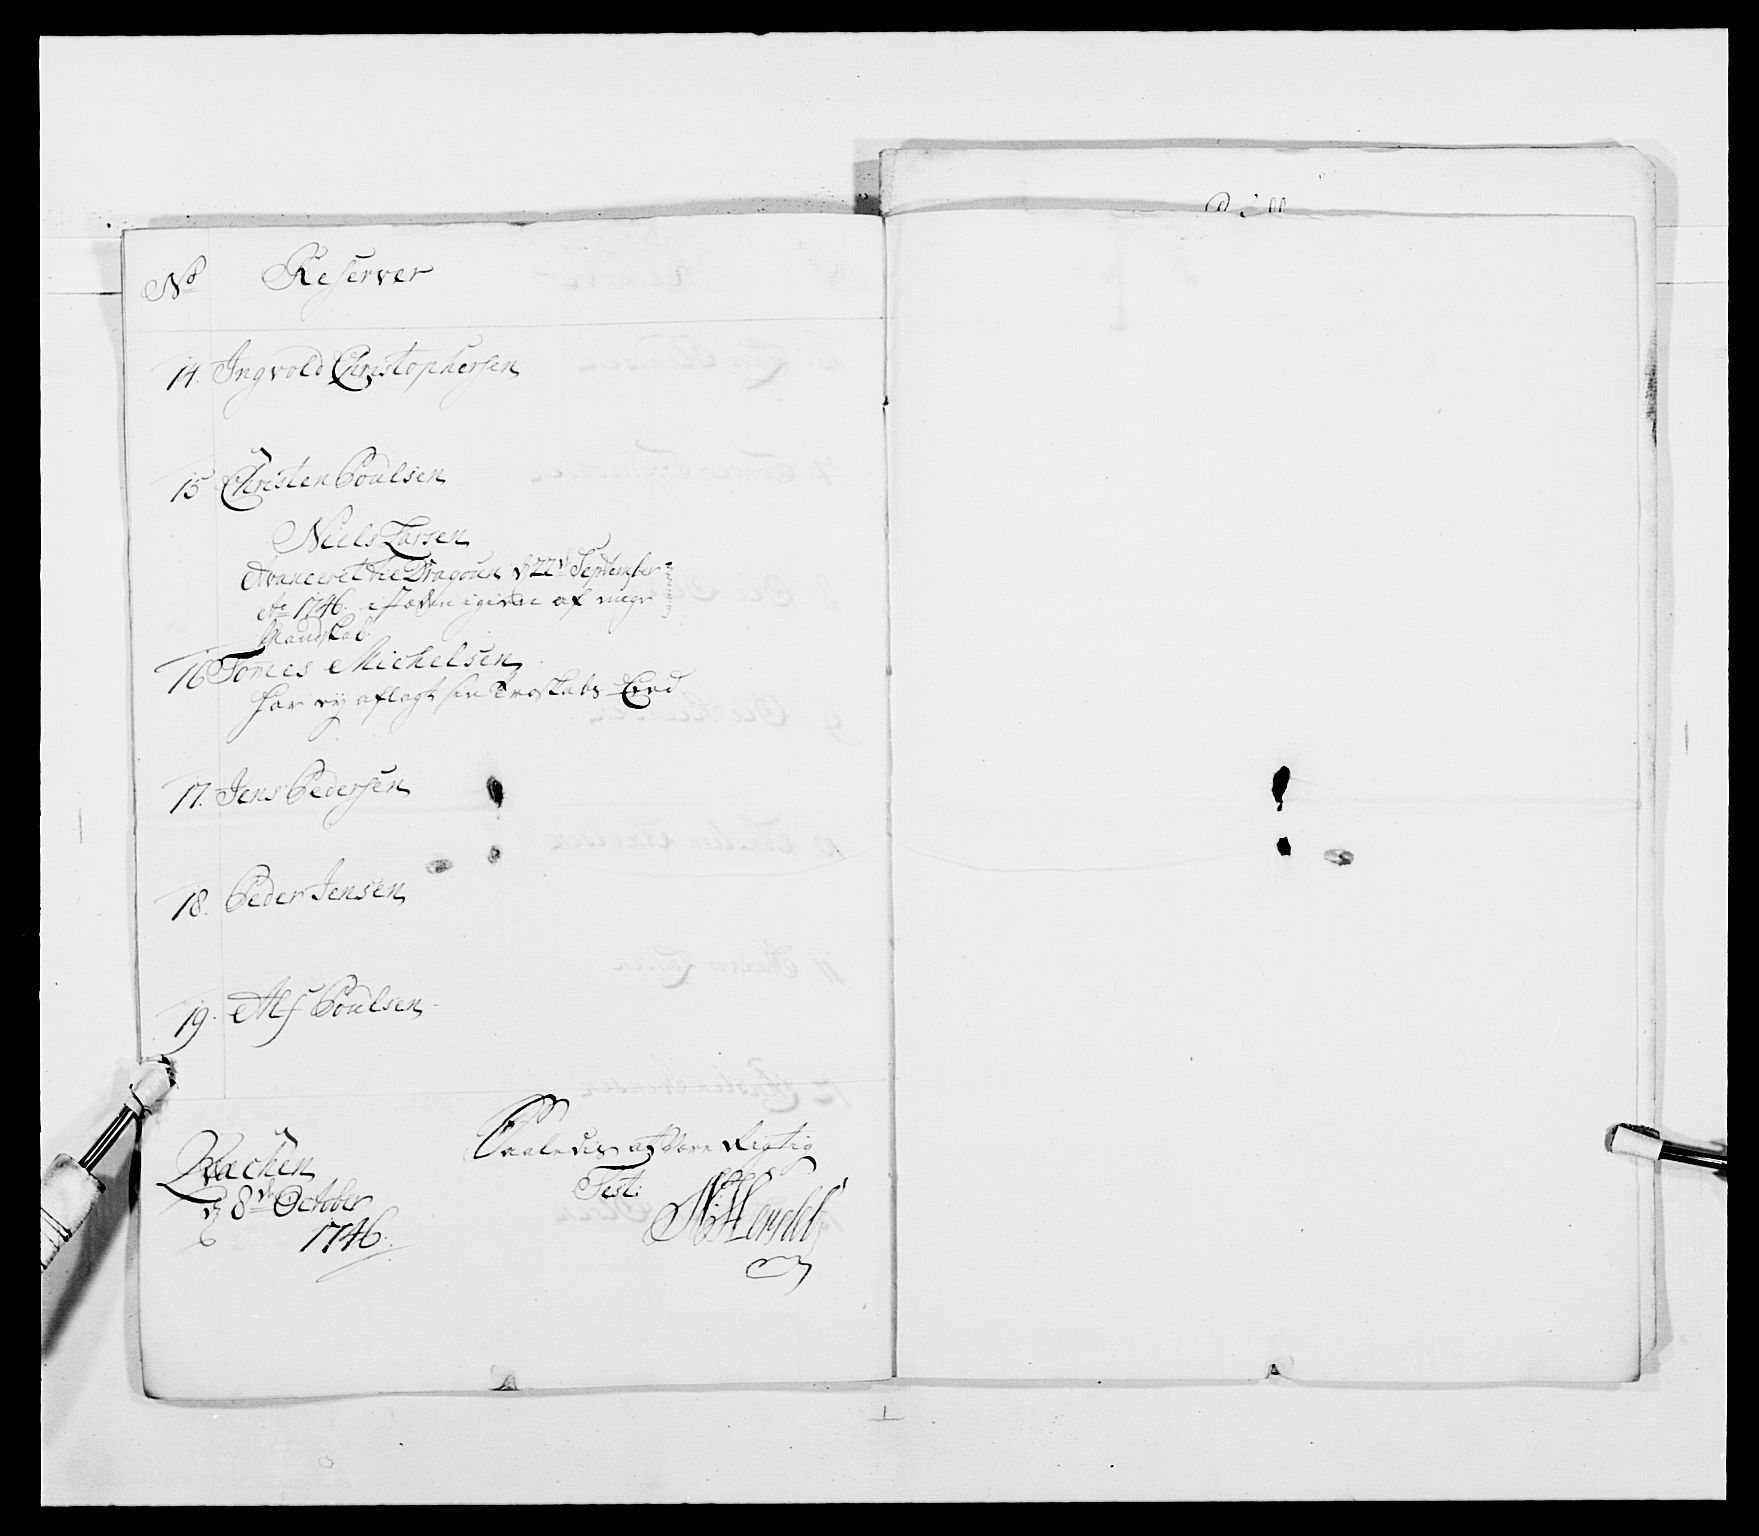 No Reserver
14. Ingvold Christophersen
15 Christen Poulsen
Niels Larsen
Avanceret til Dragoun d 22de September
Ao 1746. istæden igien af
Mandskab
16 Tomes Michelsen
har ej aflagt sin Troskabs Eed
17. Jens Pedersen
18. Peder Jensen
19. Alf Poulsen
d 8de October
1746.
Saaledis at Være Rigtig
Test: